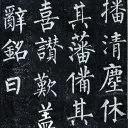 播清塵休
其藩備其
喜讚歎盖
辭銘曰